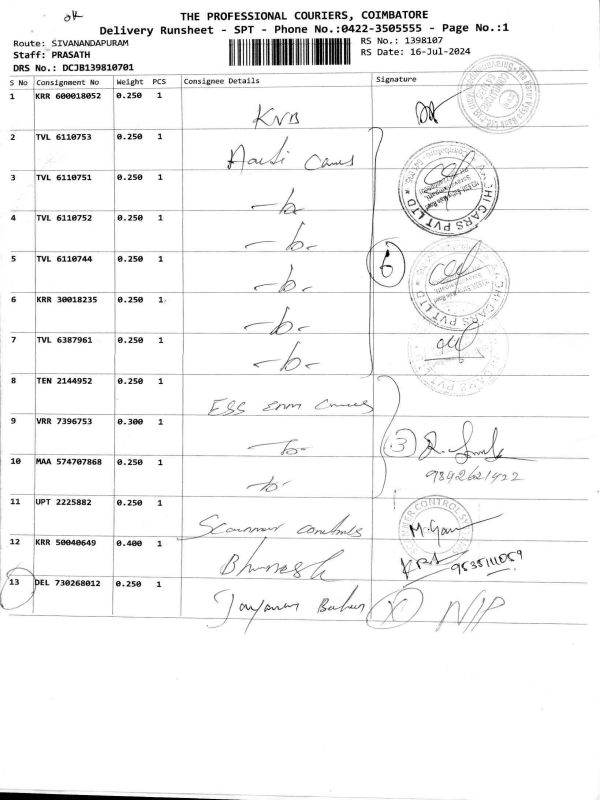 ok
THE PROFESSIONAL COURIERS, COIMBATORE
Delivery Runsheet - SPT - Phone No.:0422-3505555 - Page No.:1
Route: SIVANANDAPURAM RS No.: 1398107
Staff: PRASATH RS Date: 16-Jul-2024
DRS No.: DCJB139810701
S No Consignment No Weight PCS Consignee Details Signature
1 KRR 600018052 0.250 1
KVB
2 TVL 6110753 0.250 1
3 TVL 6110751 0.250 1
4 TVL 6110752 0.250 1
5 TVL 6110744 0.250 1
6
6 KRR 30018235 0.250 1
7 TVL 6387961 0.250 1
8 TEN 2144952 0.250 1
ESS
9 VRR 7396753 0.300 1
3
10 MAA 574707868 0.250 1
9842621422
11 UPT 2225882 0.250 1
Scanner controls
12 KRR 50040649 0.400 1
9535111059
13 DEL 730268012 0.250 1
X N/P